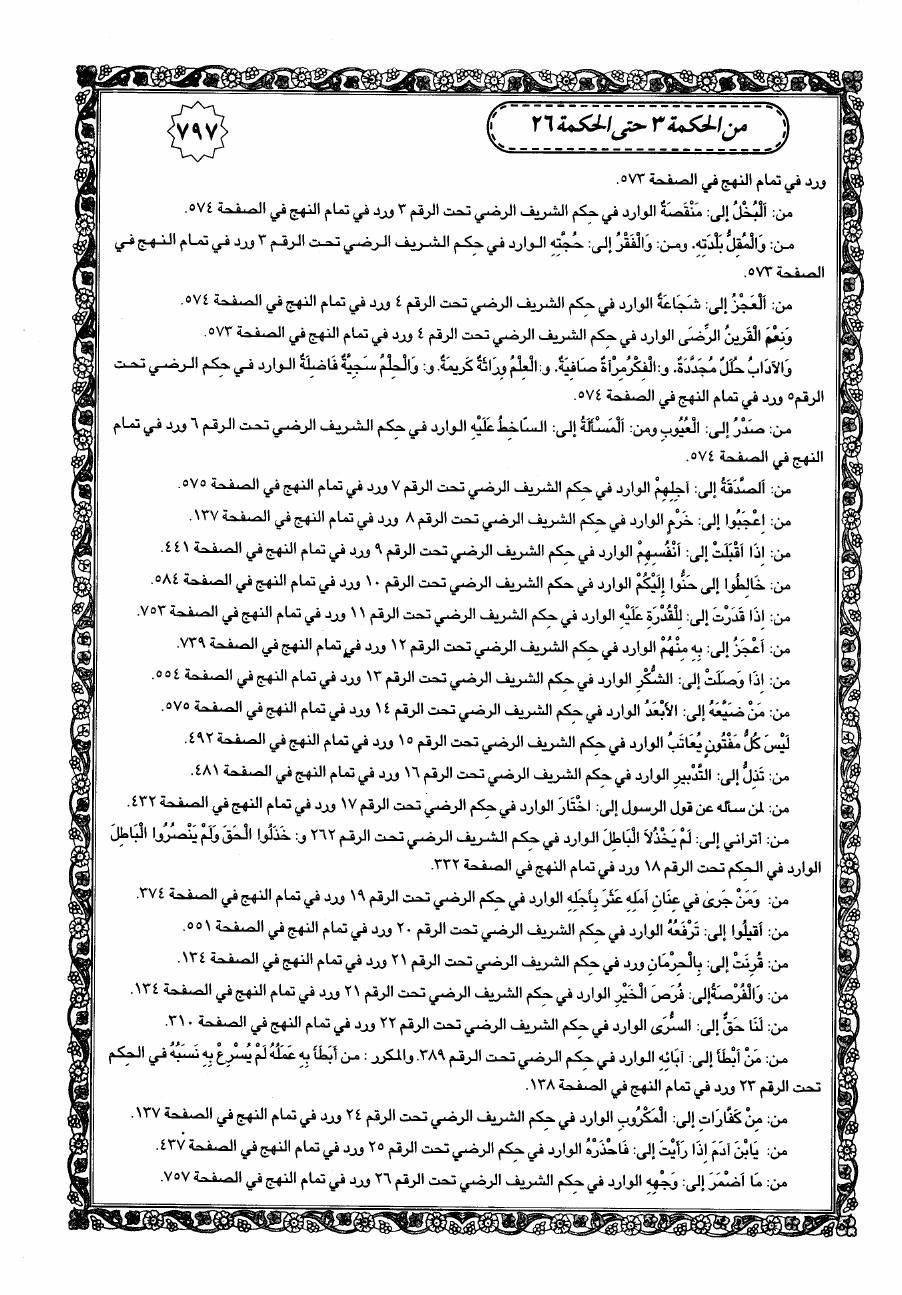 من الحكمة ٣ حتى الحكمة ٢٦
٧٩٧
ورد في تمام النهج في الصفحة ٥٧٣.
من: اَلْبُخْلُ إلى: مَنْقَصَةٌ الوارد في حِكم الشريف الرضي تحت الرقم ٣ ورد في تمام النهج في الصفحة ٥٧٤.
من: وَالْمُقِلُّ بَلْدَتِهِ، ومن: وَالْفَقْرُ إلى: حُجَّتِهِ الوارد في حِكم الشريف الرضي تحت الرقم ٣ ورد في تمام النهج في
الصفحة ٥٧٣.
من: اَلْعَجْزُ إلى: شَجَاعَةٌ الوارد في حِكم الشريف الرضي تحت الرقم ٤ ورد في تمام النهج في الصفحة ٥٧٤.
وَنِعْمَ الْقَرينُ الرِّضَى الوارد في حِكم الشريف الرضي تحت الرقم ٤ ورد في تمام النهج في الصفحة ٥٧٣.
وَالآدَابُ حُلَلٌ مُجَدَّدَةٌ، و:الْفِكْرُمِرْآةٌ صَافِيَةٌ، و:الْعِلْمُ وِرَاثَةٌ كَريمَةٌ. و: وَالْحِلْمُ سَجِيَّةٌ فَاضِلَةٌ الوارد في حكم الرضي تحت
الرقم٥ ورد في تمام النهج في الصفحة ٥٧٤.
من: صَدْرُ إلى: الْعُيُوبِ ومن: اَلْمَسْأَلَةُ إلى: السَّاخِطُ عَلَيْهِ الوارد في حكم الشريف الرضي تحت الرقم ٦ ورد في تمام
النهج في الصفحة ٥٧٤.
من: اَلصَّدَقَةُ إلى: آجِلِهِمْ الوارد في حِكم الشريف الرضي تحت الرقم ٧ ورد في تمام النهج في الصفحة ٥٧٥.
من: اِعْجَبُوا إلى: خَرْمٍ الوارد في حكم الشريف الرضي تحت الرقم ٨ ورد في تمام النهج في الصفحة ١٣٧.
من: إِذَا أَقْبَلَتْ إلى: أَنْفُسِهِمْ الوارد في حكم الشريف الرضي تحت الرقم ٩ ورد في تمام النهج في الصفحة ٤٤١.
من: خَالِطُوا إلى حَنُّوا إِلَيْكُمْ الوارد في حكم الشريف الرضي تحت الرقم ١٠ ورد في تمام النهج في الصفحة ٥٨٤.
من: إِذَا قَدَرْتَ إلى: لِلْقُدْرَةِ عَلَيْهِ الوارد في حِكم الشريف الرضي تحت الرقم ١١ ورد في تمام النهج في الصفحة ٧٥٣.
من: أَعْجَزُ إلى: بِهِ مِنْهُمْ الوارد في حكم الشريف الرضي تحت الرقم ١٢ ورد في تمام النهج في الصفحة ٧٣٩.
من: إِذَا وَصَلَتْ إلى: الشُّكْرِ الوارد في حكم الشريف الرضي تحت الرقم ١٣ ورد في تمام النهج في الصفحة ٥٥٤.
من: مَنْ ضَيَّعَهُ إلى: الأَبْعَدُ الوارد في حكم الشريف الرضي تحت الرقم ١٤ ورد في تمام النهج في الصفحة ٥٧٥.
لَيْسَ كُلُّ مَفْتُونٍ يُعَاتَبُ الوارد في حِكم الشريف الرضي تحت الرقم ١٥ ورد في تمام النهج في الصفحة ٤٩٢.
من: تَذِلُّ إلى: التَّدْبيرِ الوارد في حكم الشريف الرضي تحت الرقم ١٦ ورد في تمام النهج في الصفحة ٤٨١.
من: لمن سأله عن قول الرسول إلى: اخْتَارَ الوارد في حكم الرضي تحت الرقم ١٧ ورد في تمام النهج في الصفحة ٤٣٢.
من: أتراني إلى: لَمْ يَخْذُلاَ الْبَاطِلَ الوارد في حكم الشريف الرضي تحت الرقم ٢٦٢ و: خَذَلُوا الْحَقَّ وَلَمْ يَنْصُرُوا الْبَاطِلَ
الوارد في الحِكم تحت الرقم ١٨ ورد في تمام النهج في الصفحة ٣٣٢.
من: وَمَنْ جَرى في عِنَانِ أَمَلِهِ عَثَرَ بِأَجَلِهِ الوارد في حكم الرضي تحت الرقم ١٩ ورد في تمام النهج في الصفحة ٣٧٤.
من: أَقيلُوا إلى: تَرْفَعُهُ الوارد في حكم الشريف الرضي تحت الرقم ٢٠ ورد في تمام النهج في الصفحة ٥٥١.
من: قُرِنَتْ إلى: بِالْحِرْمَانِ ورد في حكم الشريف الرضي تحت الرقم ٢١ ورد في تمام النهج في الصفحة ١٣٤.
من: وَالْفُرْصَةُإلى: فُرَصَ الْخَيْرِ الوارد في حِكم الشريف الرضي تحت الرقم ٢١ ورد في تمام النهج في الصفحة ١٣٤.
من: لَنَا حَقٌّ إلى: السُّرَى الوارد في حكم الشريف الرضي تحت الرقم ٢٢ ورد في تمام النهج في الصفحة ٣١٠.
من: مَنْ أَبْطَأَ إلى: آبَائِهِ الوارد في حكم الرضي تحت الرقم ٣٨٩. والمكرر : من أَبَطَأَ بِهِ عَمَلُهُ لَمْ يُسْرِعْ بِهِ نَسَبُهُ في الحِكم
تحت الرقم ٢٣ ورد في تمام النهج في الصفحة ١٣٨.
من: مِنْ كَفَّارَاتِ إلى: الْمَكْرُوبِ الوارد في حكم الشريف الرضي تحت الرقم ٢٤ ورد في تمام النهج في الصفحة ١٣٧.
من: يَابْنَ آدَمَ إِذَا رَأَيْتَ إلى: فَاحْذَرْهُ الوارد في حكم الرضي تحت الرقم ٢٥ ورد في تمام النهج في الصفحة ٤٣٧.
من: مَا أَضْمَرَ إلى: وَجْهِهِ الوارد في حكم الشريف الرضي تحت الرقم ٢٦ ورد في تمام النهج في الصفحة ٧٥٧.